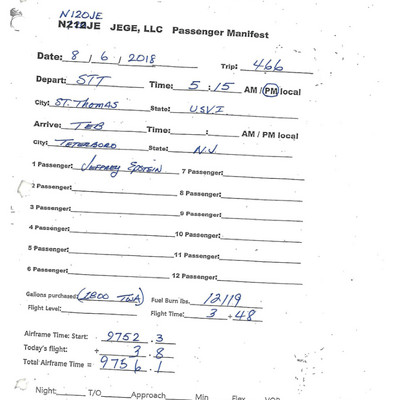 N120JE
N212JE JEGE, LLC Passenger Manifest
Date: 8 / 6 / 2018 Trip: 466
Depart: STT Time: 5 : 15 AM / PM local
City: ST. Thomas State: USVI
Arrive: TEB Time: : AM / PM local
City: TETERBORO State: NJ
1 Passenger: JEFFREY EPSTEIN 7 Passenger:
2 Passenger: 8 Passenger:
3 Passenger: 9 Passenger:
4 Passenger: 10 Passenger:
5 Passenger: 11 Passenger:
6 Passenger: 12 Passenger:
Gallons purchased: (1800 TWA) Fuel Burn lbs. 12119
Flight Level: Flight Time: 3 + 48
Airframe Time: Start: 9752 . 3
Today's flight: + 3 . 8
Total Airframe Time = 9756 . 1
Night: T/O Approach Min Flex VOR